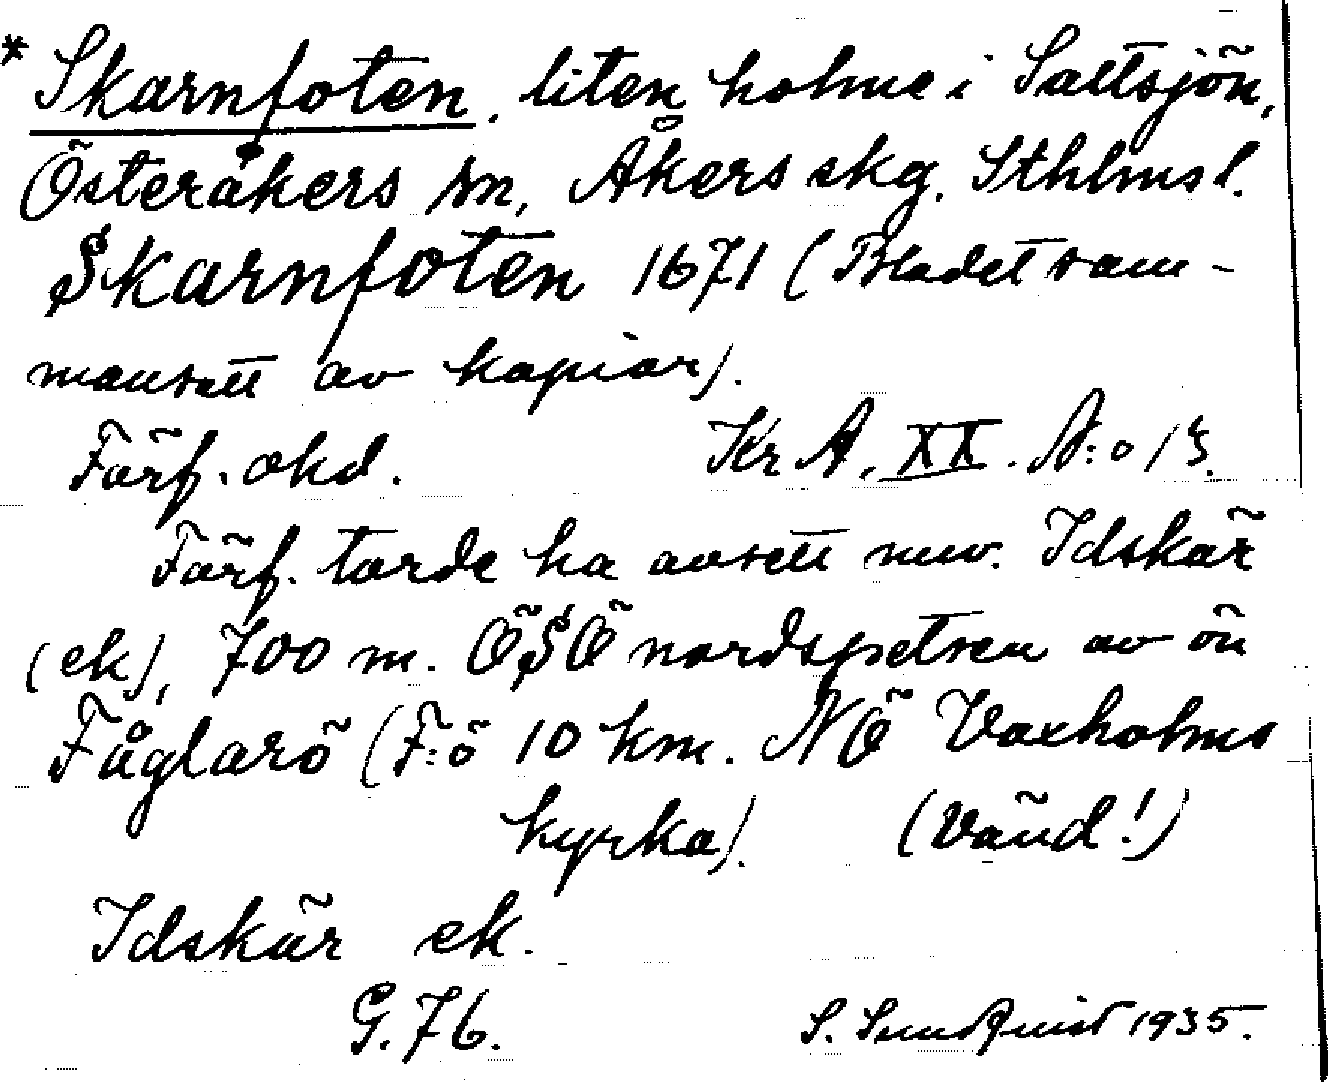 * Skarnfoten, liten holme i Saltsjön,
Österåkers sn, Åkers skg. Sthlms l.
Skarnfoten 1671 (Bladet sam-
mansatt av kopior).
Förf. okd. Kr A. XX. N:o 13.
Förf. torde ha avsett nuv. Idskär
(ek), 700 m. ÖSÖ nordspetsen av ön
Fåglarö (F:ö 10 km. NÖ Vaxholms
kyrka). (Vänd!)
Idskär ek.
G. 76. S. Sundquist 1935.